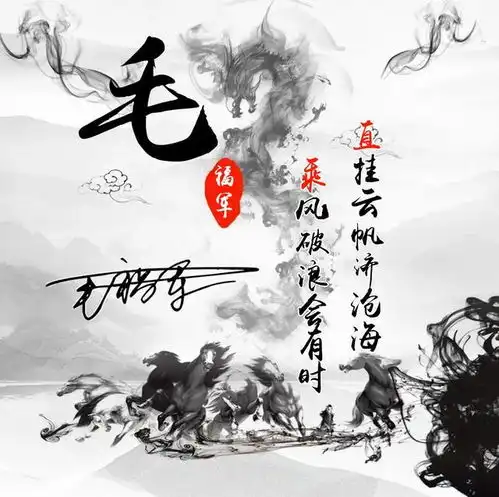 毛
福军
毛福军
直挂云帆济沧海
乘风破浪会有时